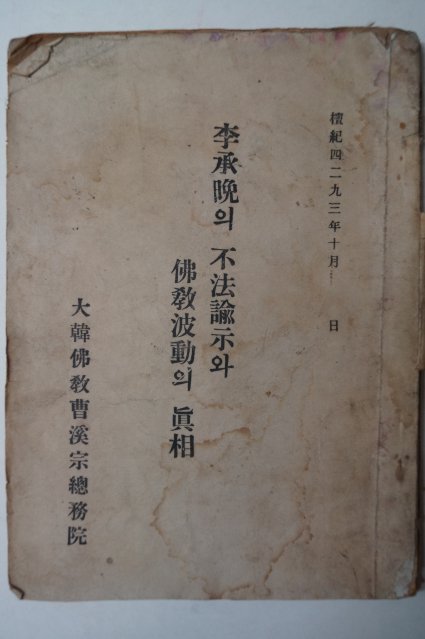 檀紀四二九三年十月 日
李承晩의 不法諭示와
佛敎波動의 眞相
大韓佛敎曹溪宗總務院